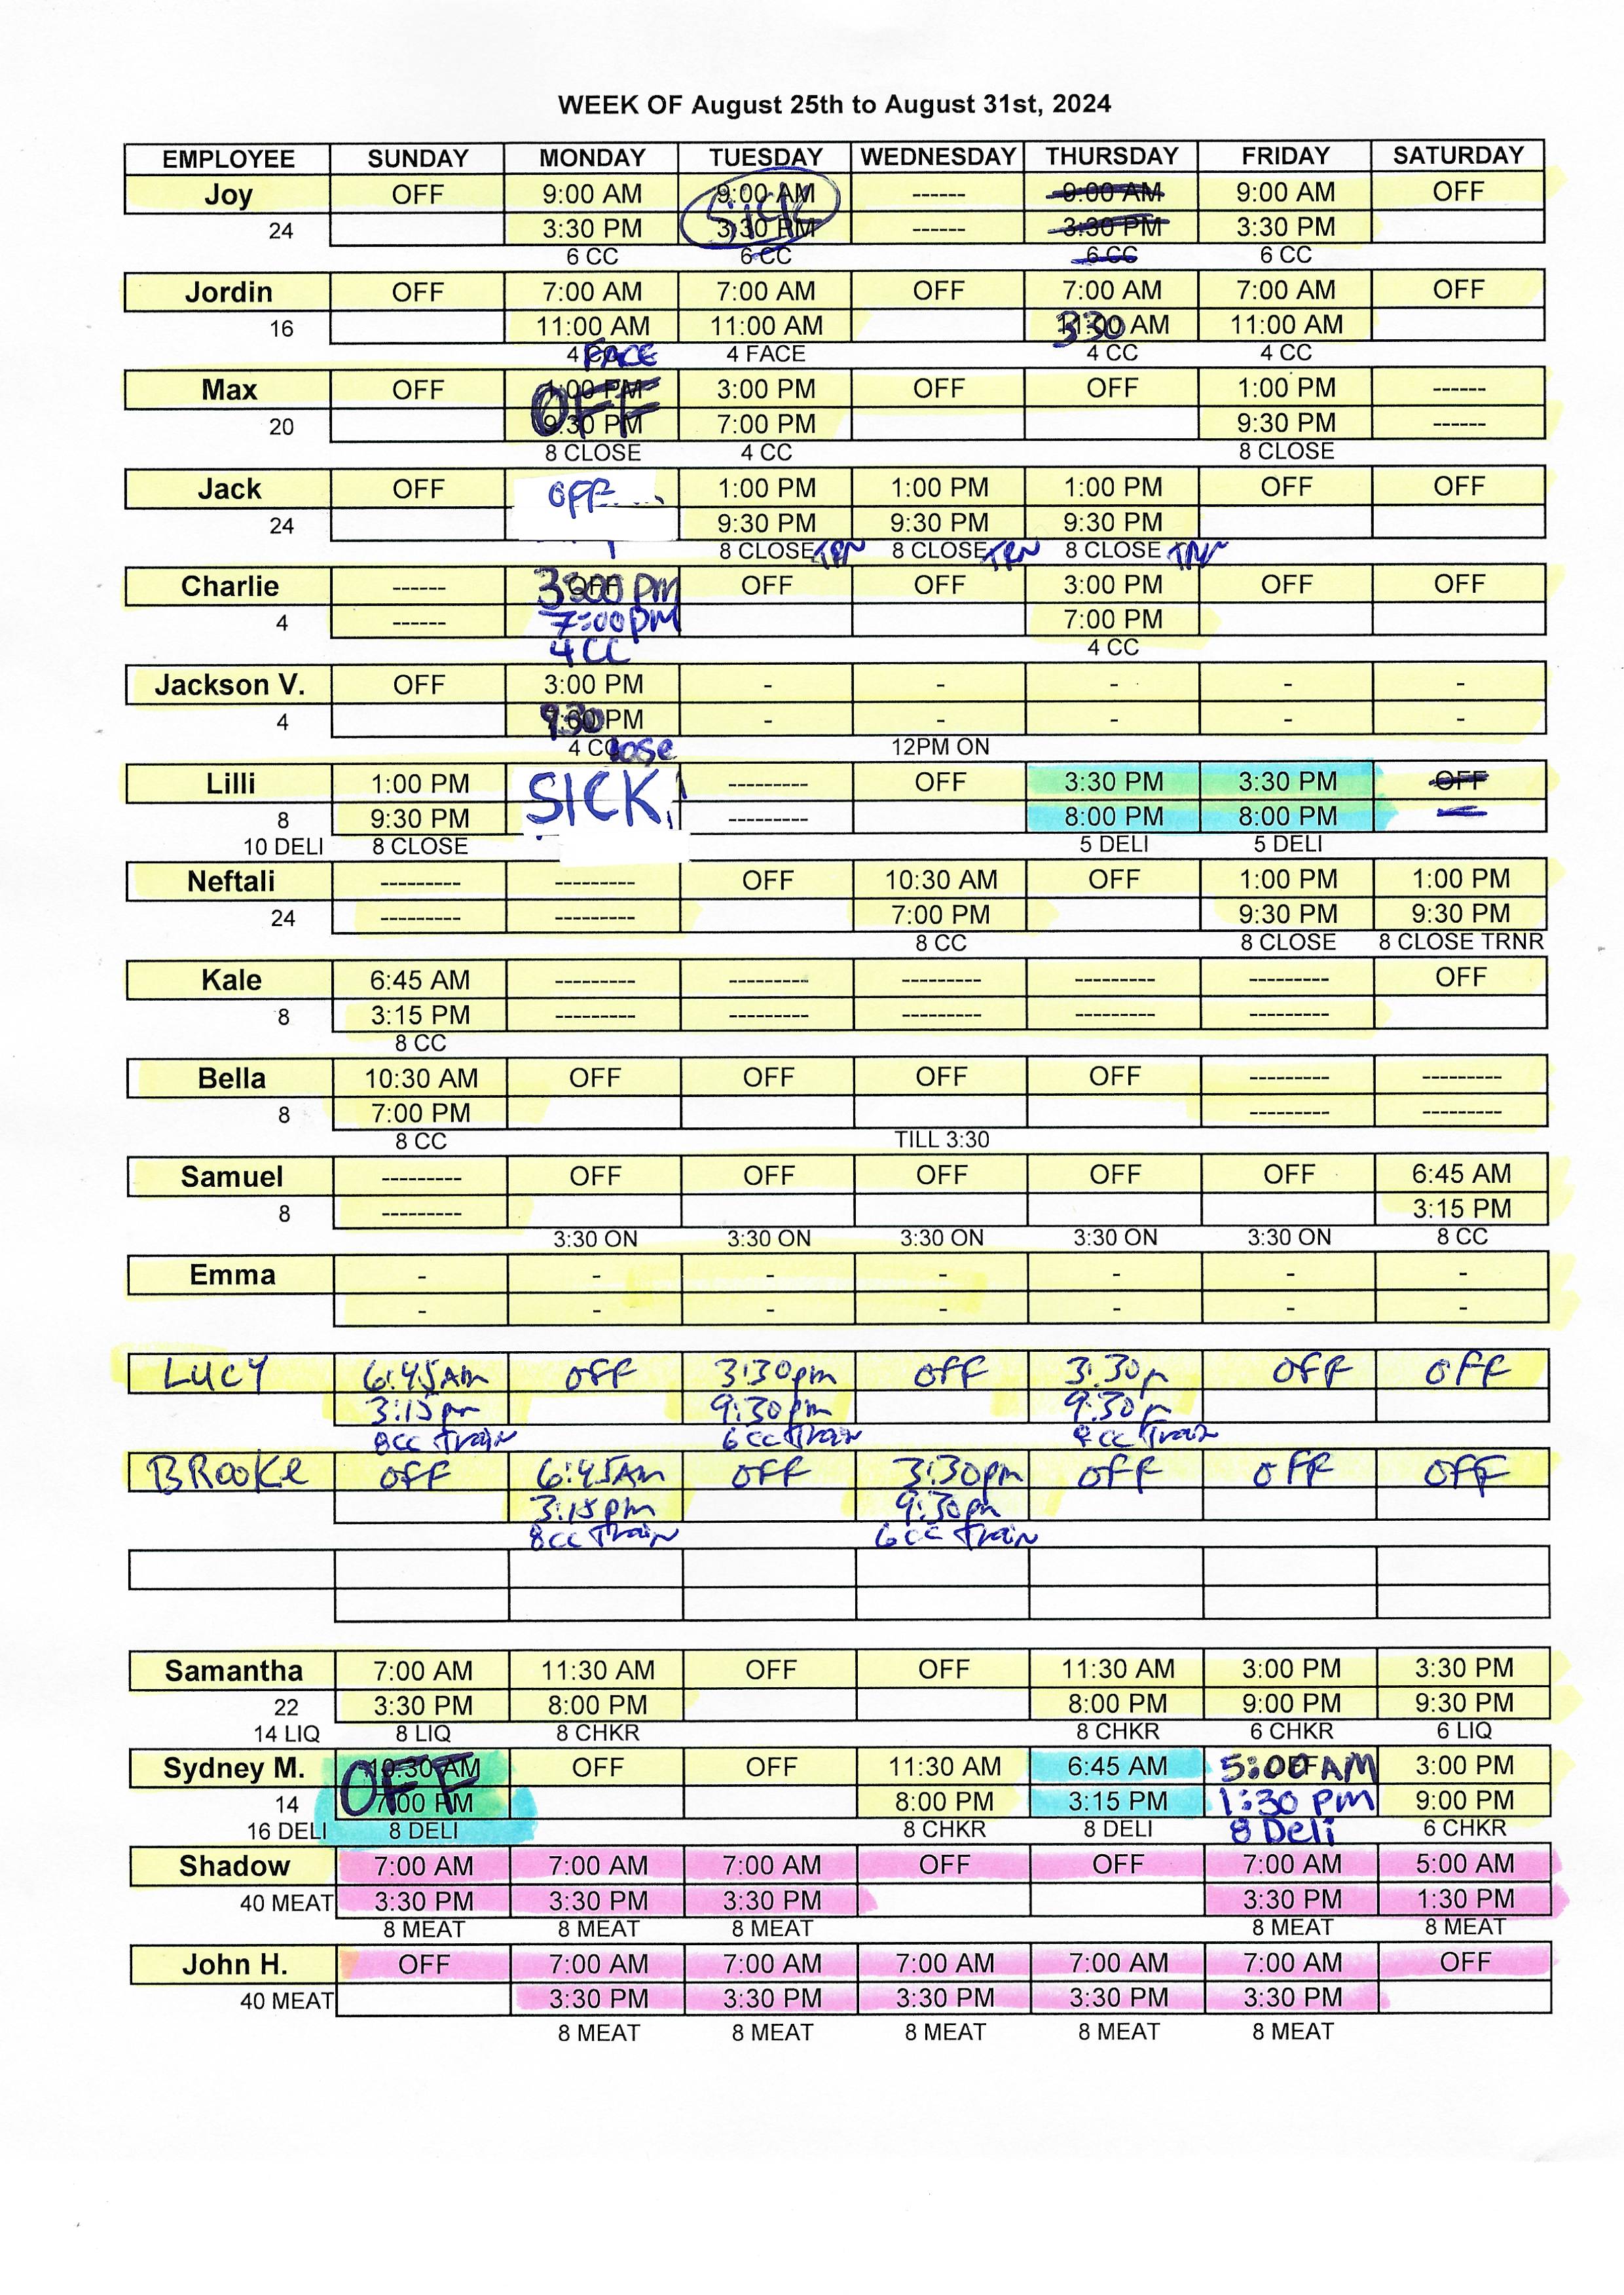 WEEK OF August 25th to August 31st, 2024
EMPLOYEE SUNDAY MONDAY TUESDAY WEDNESDAY THURSDAY FRIDAY SATURDAY
Joy OFF 9:00 AM 9:00 AM SICK ------ 9:00 AM 9:00 AM OFF
24 3:30 PM 3:30 PM ------ 3:30 PM 3:30 PM
6 CC 6 CC 6 CC 6 CC
Jordin OFF 7:00 AM 7:00 AM OFF 7:00 AM 7:00 AM OFF
16 11:00 AM 11:00 AM 330 AM 11:00 AM
4 FACE 4 FACE 4 CC 4 CC
Max OFF 1:00 PM OFF 3:00 PM OFF OFF 1:00 PM ------
20 9:30 PM 7:00 PM 9:30 PM ------
8 CLOSE 4 CC 8 CLOSE
Jack OFF OFF 1:00 PM 1:00 PM 1:00 PM OFF OFF
24 9:30 PM 9:30 PM 9:30 PM
8 CLOSE TRN 8 CLOSE TRN 8 CLOSE TRN
Charlie ------ 3:00 pm OFF OFF 3:00 PM OFF OFF
4 ------ 7:00 pm 7:00 PM
4 CC 4 CC
Jackson V. OFF 3:00 PM - - - - -
4 930 PM - - - - -
4 Close 12PM ON
Lilli 1:00 PM SICK --------- OFF 3:30 PM 3:30 PM OFF
8 9:30 PM --------- 8:00 PM 8:00 PM
10 DELI 8 CLOSE 5 DELI 5 DELI
Neftali --------- --------- OFF 10:30 AM OFF 1:00 PM 1:00 PM
24 --------- --------- 7:00 PM 9:30 PM 9:30 PM
8 CC 8 CLOSE 8 CLOSE TRNR
Kale 6:45 AM --------- --------- --------- --------- --------- OFF
8 3:15 PM --------- --------- --------- --------- ---------
8 CC
Bella 10:30 AM OFF OFF OFF OFF --------- ---------
8 7:00 PM --------- ---------
8 CC TILL 3:30
Samuel --------- OFF OFF OFF OFF OFF 6:45 AM
8 --------- 3:15 PM
3:30 ON 3:30 ON 3:30 ON 3:30 ON 3:30 ON 8 CC
Emma - - - - - - -
- - - - - - -
LUCY 6:45AM OFF 3:30pm OFF 3:30p OFF OFF
3:15pm 9:30pm 9:30p
8cc Train 6cc Train cc Train
BROOKE OFF 6:45AM OFF 3:30pm OFF OFF OFF
3:15pm 9:30pm
8cc Train 6cc Train
Samantha 7:00 AM 11:30 AM OFF OFF 11:30 AM 3:00 PM 3:30 PM
22 3:30 PM 8:00 PM 8:00 PM 9:00 PM 9:30 PM
14 LIQ 8 LIQ 8 CHKR 8 CHKR 6 CHKR 6 LIQ
Sydney M. 10:30 AM OFF OFF OFF 11:30 AM 6:45 AM 5:00 AM 3:00 PM
14 7:00 PM 8:00 PM 3:15 PM 1:30 pm 9:00 PM
16 DELI 8 DELI 8 CHKR 8 DELI 8 Deli 6 CHKR
Shadow 7:00 AM 7:00 AM 7:00 AM OFF OFF 7:00 AM 5:00 AM
40 MEAT 3:30 PM 3:30 PM 3:30 PM 3:30 PM 1:30 PM
8 MEAT 8 MEAT 8 MEAT 8 MEAT 8 MEAT
John H. OFF 7:00 AM 7:00 AM 7:00 AM 7:00 AM 7:00 AM OFF
40 MEAT 3:30 PM 3:30 PM 3:30 PM 3:30 PM 3:30 PM
8 MEAT 8 MEAT 8 MEAT 8 MEAT 8 MEAT